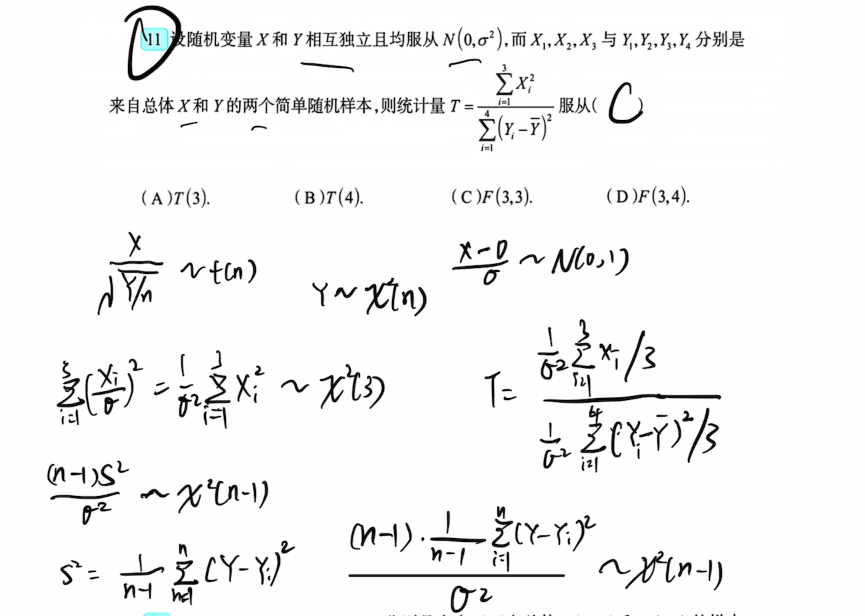 11 设随机变量 X 和 Y 相互独立且均服从 N(0,σ²),而 X₁,X₂,X₃ 与 Y₁,Y₂,Y₃,Y₄ 分别是
来自总体 X 和 Y 的两个简单随机样本,则统计量 T = \frac{\sum_{i=1}^{3} X_i^2}{\sum_{i=1}^{4} (Y_i - \overline{Y})^2} 服从( C )
(A)T(3). (B)T(4). (C)F(3,3). (D)F(3,4).
\frac{X}{\sqrt{Y/n}} ~ t(n) Y ~ χ²(n) \frac{X-0}{σ} ~ N(0,1)
\sum_{i=1}^{3} (\frac{X_i}{σ})^2 = \frac{1}{σ^2} \sum_{i=1}^{3} X_i^2 ~ χ²(3) T = \frac{\frac{1}{σ^2} \sum_{i=1}^{3} X_i /3}{\frac{1}{σ^2} \sum_{i=1}^{4} (Y_i - \overline{Y})^2 /3}
\frac{(n-1)S^2}{σ^2} ~ χ²(n-1)
S² = \frac{1}{n-1} \sum_{n=1}^{n} (Y-Y_i)^2 \frac{(n-1)·\frac{1}{n-1} \sum_{i=1}^{n} (Y-Y_i)^2}{σ^2} ~ χ²(n-1)